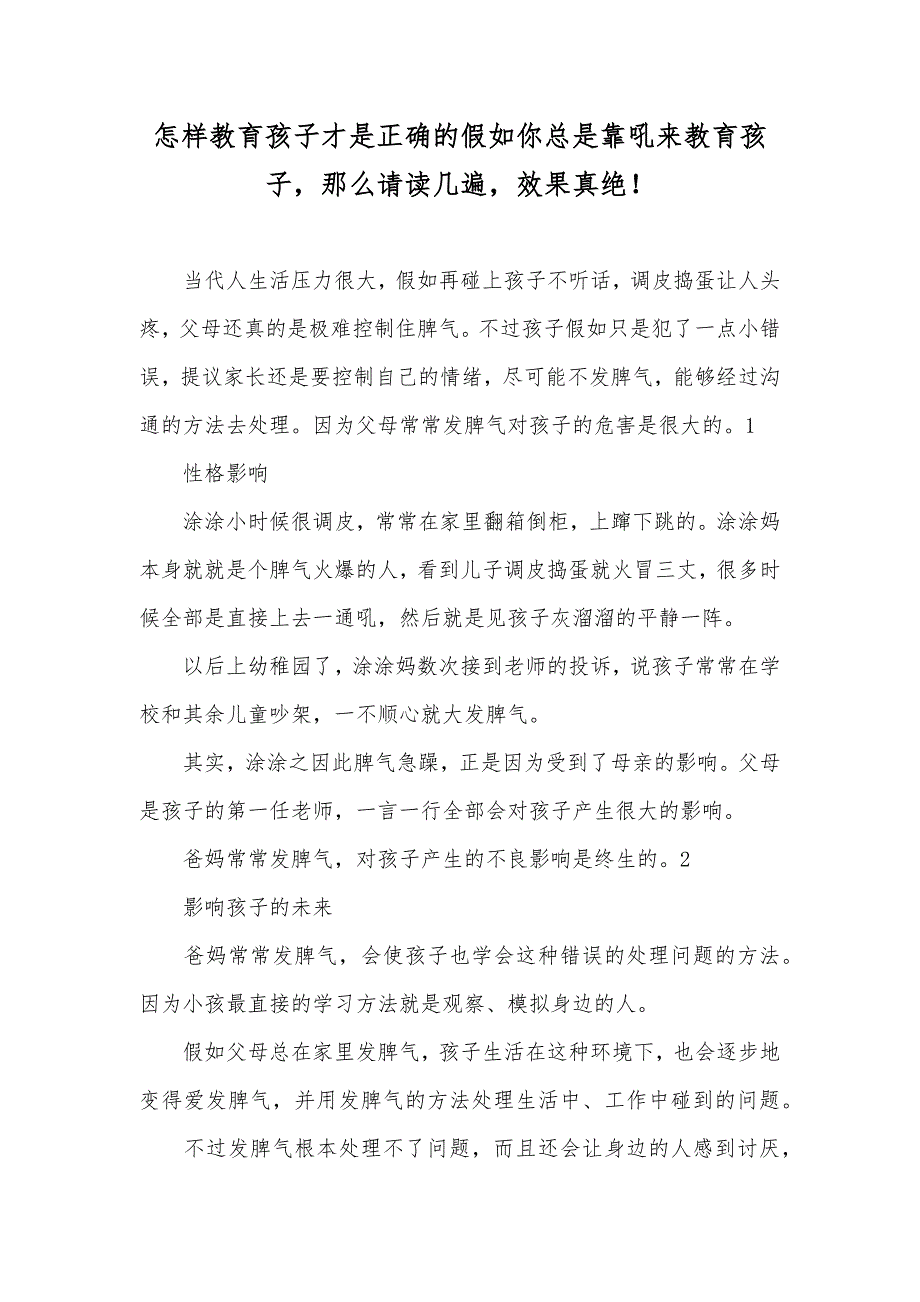 怎样教育孩子才是正确的假如你总是靠吼来教育孩
子，那么请读几遍，效果真绝！
当代人生活压力很大，假如再碰上孩子不听话，调皮捣蛋让人头
疼，父母还真的是极难控制住脾气。不过孩子假如只是犯了一点小错
误，提议家长还是要控制自己的情绪，尽可能不发脾气，能够经过沟
通的方法去处理。因为父母常常发脾气对孩子的危害是很大的。1
性格影响
涂涂小时候很调皮，常常在家里翻箱倒柜，上蹿下跳的。涂涂妈
本身就就是个脾气火爆的人，看到儿子调皮捣蛋就火冒三丈，很多时
候全部是直接上去一通吼，然后就是见孩子灰溜溜的平静一阵。
以后上幼稚园了，涂涂妈数次接到老师的投诉，说孩子常常在学
校和其余儿童吵架，一不顺心就大发脾气。
其实，涂涂之因此脾气急躁，正是因为受到了母亲的影响。父母
是孩子的第一任老师，一言一行全部会对孩子产生很大的影响。
爸妈常常发脾气，对孩子产生的不良影响是终生的。2
影响孩子的未来
爸妈常常发脾气，会使孩子也学会这种错误的处理问题的方法。
因为小孩最直接的学习方法就是观察、模拟身边的人。
假如父母总在家里发脾气，孩子生活在这种环境下，也会逐步地
变得爱发脾气，并用发脾气的方法处理生活中、工作中碰到的问题。
不过发脾气根本处理不了问题，而且还会让身边的人感到讨厌，